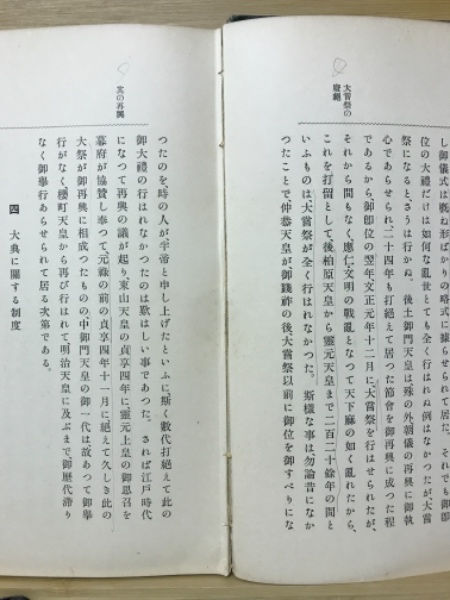 大嘗祭の
廢絕
し御儀式は概ね形ばかりの略式に據らせられて居た。それでも御卽
位の大禮だけは如何な亂世とても全く行はれぬ例はなかつたが、大嘗
祭になると、さうは行かぬ。後土御門天皇は殊の外朝儀の再興に御執
心であらせられ二十四年も打絕えて居つた節會を御再興に成つた程
であるから、御卽位の翌年文正元年十二月に、大嘗祭を行はせられたが、
それから間もなく、應仁・文明の戰亂となつて天下麻の如く亂れたから、
これを打留として、後柏原天皇から靈元天皇まで二百二十餘年の間と
いふものは、大嘗祭が全く行はれなかつた。斯樣な事は、勿論昔になか
つたことで、仲恭天皇が御踐祚の後、大嘗祭以前に御位を御すべりにな
其の再興
つたのを、時の人が半帝と申し上げたといふに、斯く數代打絕えて此の
御大禮の行はれなかつたのは歎はしい事であつた。されば江戶時代
になつて再興の議が起り、東山天皇の貞享四年に、靈元上皇の御思召を
幕府が協贊し奉つて、元祿の前の貞享四年十一月に絕えて久しき此の
大祭が御再興に相成つたものの、中御門天皇の御一代は、故あつて御擧
行がなく櫻町天皇から再び行はれて明治天皇に及ぶまで、御歷代滯り
なく御擧行あらせられて居る次第である。
四 大典に關する制度